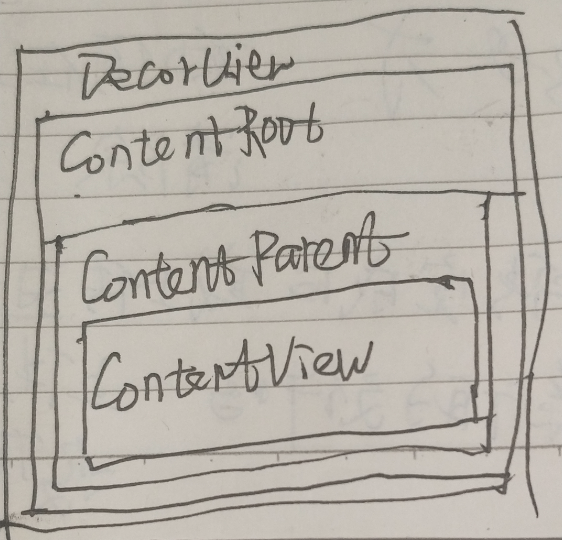 DecorView
ContentRoot
ContentParent
ContentView